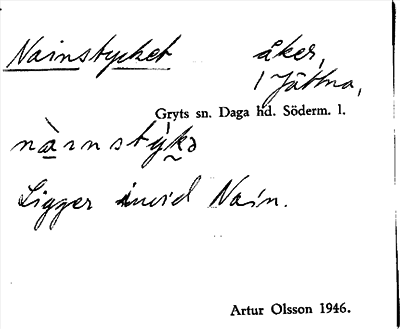 Nainstycket åker,
1 Jättna,
Gryts sn. Daga hd. Söderm. l.
Ligger invid Nain.
Artur Olsson 1946.